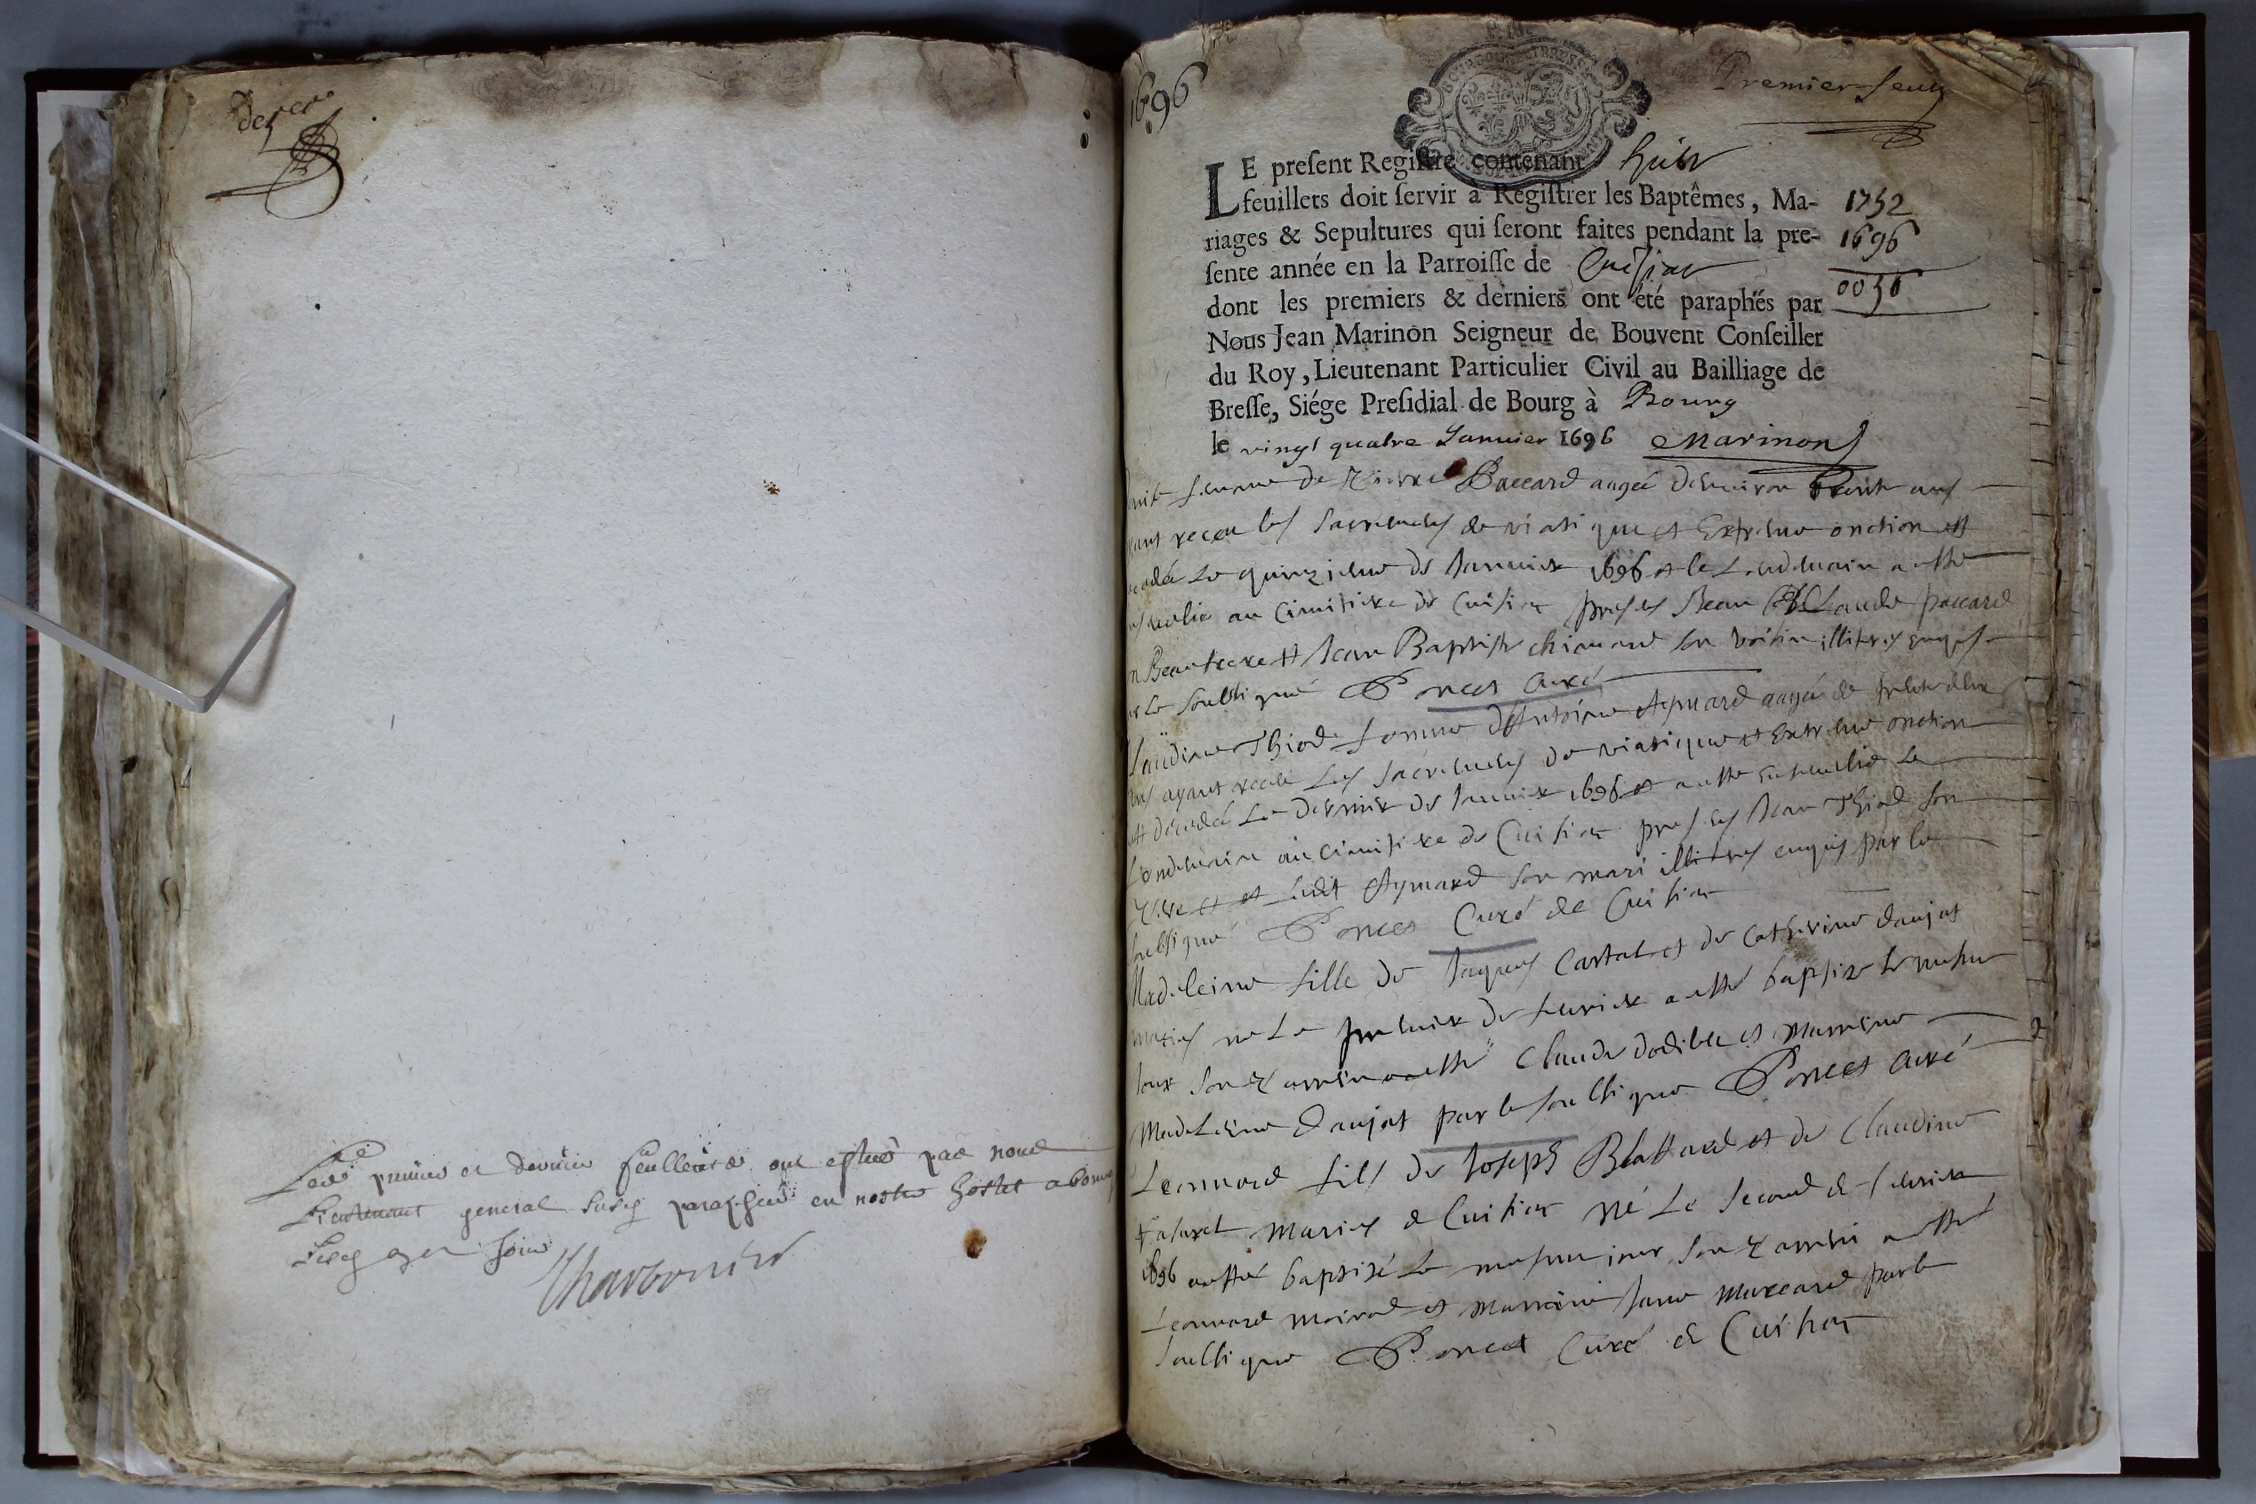 der.er
Les premier et dernier feuillets ont esté par nous
Lieutenant general susd paraphés en nostre hostel a bourg
Charbonnier
1696
Premier feuil
LE preſent Regiſtre contenant huit
feuillets doit ſervir à Regiſtrer les Baptêmes, Ma-
riages & Sepultures qui ſeront faites pendant la pre-
ſente année en la Parroiſſe de Cuisiat
dont les premiers & derniers ont été paraphés par
Nous Jean Marinon Seigneur de Bouvent Conſeiller
du Roy, Lieutenant Particulier Civil au Bailliage de
Breſſe, Siége Preſidial de Bourg à Bourg
le vingt quatre Janvier 1696 Marinon
1752
1696
0056
femme de Pierre Baccard aagée denviron trente ans
receu les sacremens de viatique et Extreme onction est
le quinzieme de Janvier 1696 et le Lendemain a esté
au Cimitiere de Cuisiat presens Claude paccard
Beaufrere et Jean Baptiste chanard son voisin illiteres enquis
le soubsigné Poncet Curé
Claudine Thiod femme d'Antoine Aymard aagée de trente deux
ans ayant receu Les sacremens de viatique et Extreme onction
est decedée Le dernier de Janvier 1696 et a esté ensevelie Le
Lendemain au cimitiere de Cuisiat presens Jean Thiod son
Pere et Ledit Aymard son mari illiteres enquis par le
soubsigné Poncet Curé de Cuisiat
Madeleine fille de Jaques Cartalet de Catherine danjat
mariés né Le premier de feurier a esté baptisé le mesme
jour son Parrin a esté Claude dodible et Marreine
Madeleine danjat par le soubsigné Poncet Curé
Leonnard fils de Joseph Blattard et de Claudine
mariés de Cuisiat né Le second de feurier
1696 a esté baptisé Le mesme jour son Parrin a esté
Leonnard moirod et Marreine Jane Muccard par le
soubsigné Poncet Curé de Cuisiat